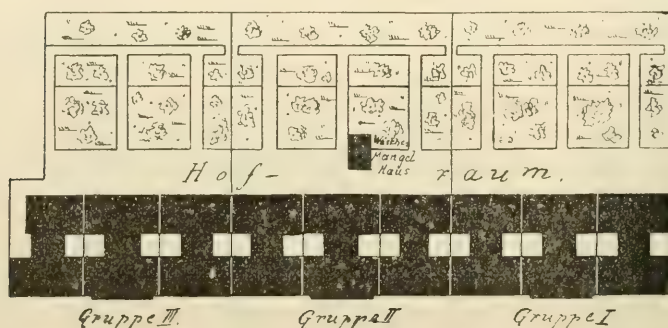 Mangel
Haus
Hof-raum.
Gruppe III. Gruppe II Gruppe I